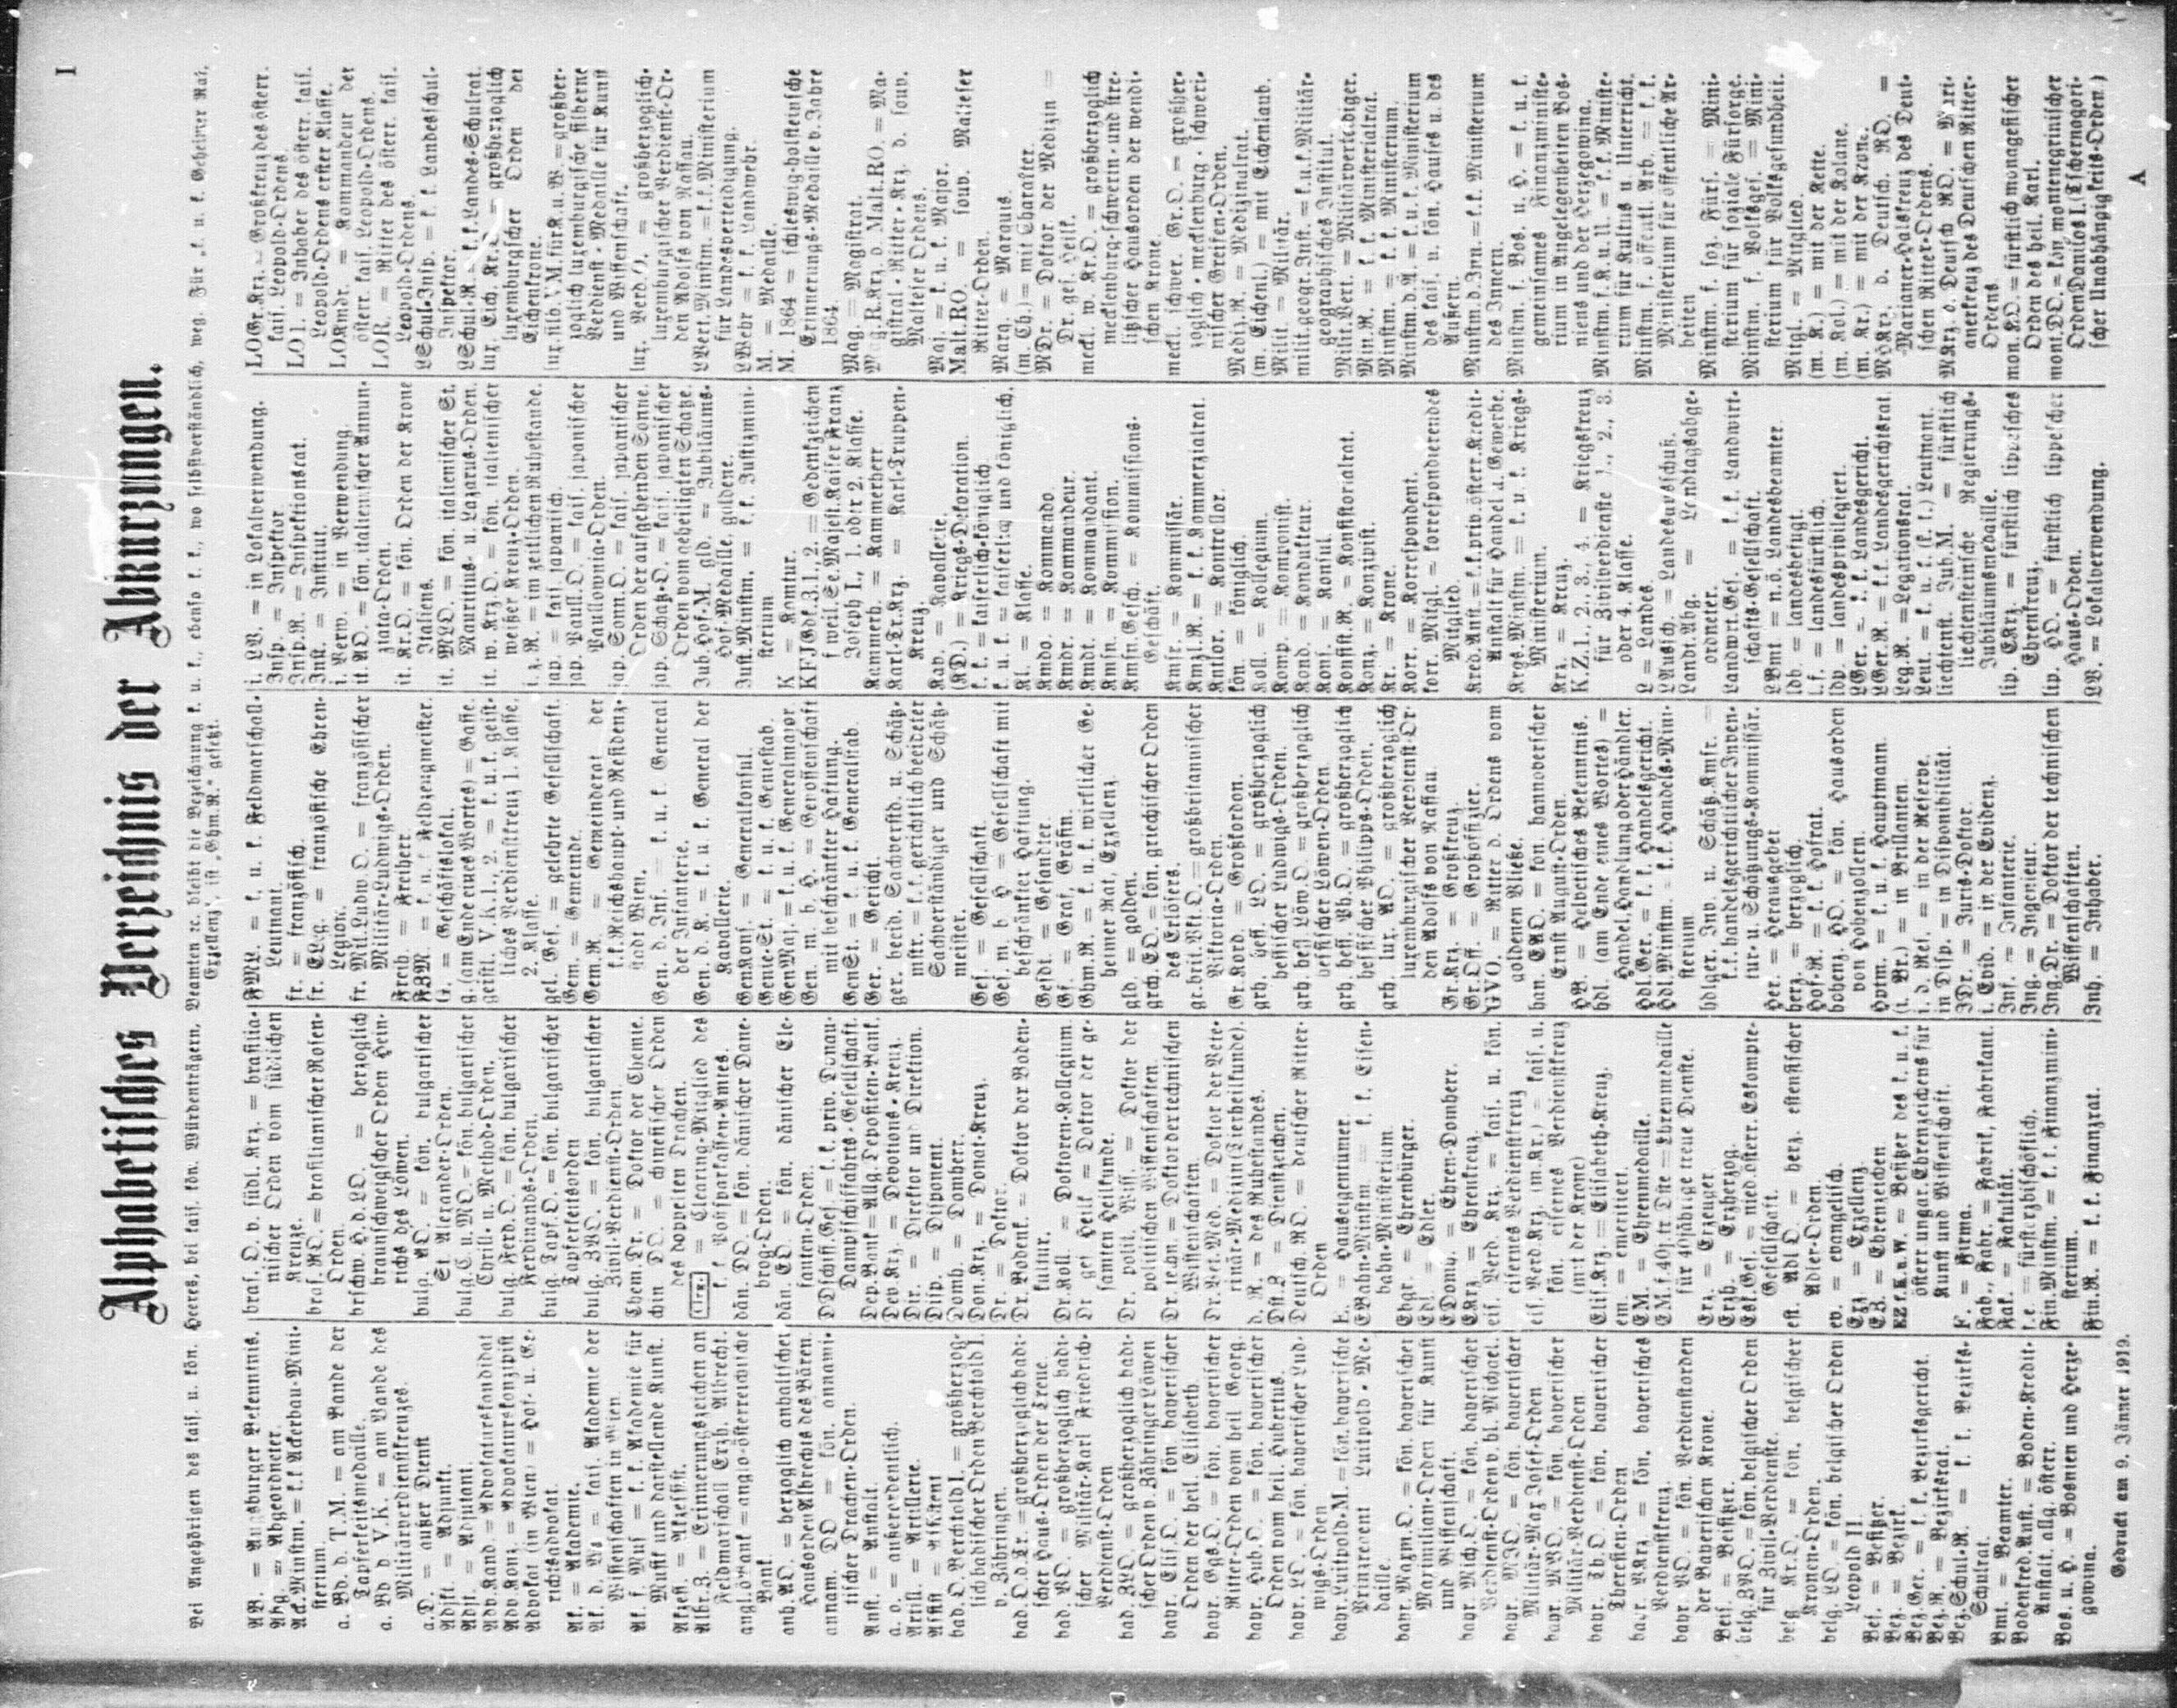 I
Alphabetisches Verzeichnis der Abkürzungen.
Bei Angehörigen des kais. u. kön. Heeres, bei kais. kön. Würdenträgern, Beamten ꝛc. bleibt die Bezeichnung k. u. k., ebenso k. k., wo selbstverständlich, weg. Für „k. u. k. Geheimer Rat,
Exzellenz", ist „Ghm.R." gesetzt.
AB. = Augsburger Bekenntnis.
Abg = Abgeordneter.
Ack.Minstm. = k.k Ackerbau-Mini-
sterium.
a. Bd. d. T.M. = am Bande der
Tapferkeitsmedaille.
a. Bd d V.K. = am Bande des
Militärverdienstkreuzes.
a.D. = außer Dienst
Adjkt. = Adjunkt.
Adjt. = Adjutant.
Adv.Kand = Advokaturskandidat
Adv.Konz. = Advokaturskonzipist
Advokat (in Wien) = Hof- u. Ge-
richtsadvokat.
Ak. = Akademie.
Ak. d. Ws = kais. Akademie der
Wissenschaften in Wien.
Ak. f. Mus = k. k. Akademie für
Musik und darstellende Kunst.
Akzess. = Akzessist.
Albr.Z. = Erinnerungszeichen an
Feldmarschall Erzh. Albrecht.
angl.öBank = anglo-österreichische
Bank.
anh.AO. = herzoglich anhaltischer
Hausorden Albrechts des Bären.
annam. DO = kön. annami-
tischer Drachen-Orden.
Anst. = Anstalt.
a. o. = außerordentlich.
Artill. = Artillerie.
Assist = Assistent
bad.O Berthold I. = großherzog-
lich badischer Orden Berthold I.
v. Zähringen.
bad.O.d Tr. = großherzoglich badi-
scher Haus-Orden der Treue.
bad. VO. = großherzoglich badi-
scher Militär-Karl Friedrich-
Verdienst-Orden
bad. ZLO. = großherzoglich badi-
scher Orden v. Zähringer Löwen
bayr. Elis O. = kön. bayerischer
Orden der heil. Elisabeth.
bayr. Ggs.O. = kön. bayerischer
Ritter-Orden vom heil Georg.
bayr. Hub.O. = kön. bayerischer
Orden vom heil. Hubertus.
bayr. LO. = kön. bayerischer Lud-
wigs-Orden
bayr.Luitpold-M. = kön. bayerische
Prinzregent Luitpold-Me-
daille.
bayr. Maxm.O. = kön. bayerischer
Maximilian-Orden für Kunst
und Wissenschaft.
bayr. Mich.O. = kön. bayerischer
Verdienst-Orden v. hl. Michael.
bayr. MJO. = kön. bayerischer
Militär-Max Josef-Orden.
bayr. MVO. = kön. bayerischer
Militär-Verdienst-Orden
bayr. Th.O. = kön. bayerischer
Theresien-Orden
bayr. VKrz. = kön. bayerisches
Verdienstkreuz.
bayr. VO. = kön. Verdienstorden
der Bayerischen Krone.
Beis. = Beisitzer.
belg.ZVO. = kön. belgischer Orden
für Zivil-Verdienste.
belg Kr.O = kön. belgischer
Kronen-Orden.
belg. LO = kön. belgischer Orden
Leopold II.
Bes. = Besitzer.
Bez. = Bezirk.
Bez.Ger. = k. k. Bezirksgericht.
Bez.R. = Bezirksrat.
Bez.Schul-R. = k. k. Bezirks-
Schulrat.
Bmt. = Beamter.
Bodenkred.Anst. = Boden-Kredit-
Anstalt, allg. österr.
Bos. u. H. = Bosnien und Herze-
gowina.
bras.O. v. südl. Krz. = brasilia-
nischer Orden vom südlichen
Kreuze.
bras. RO. = brasilianischer Rosen-
Orden.
brschw. H.d.LO. = herzoglich
braunschweigischer Orden Hein-
richs des Löwen.
bulg. AO. = kön. bulgarischer
St. Alexander-Orden.
bulg.C. u. MO. = kön. bulgarischer
Chrill- u. Method-Orden.
bulg. Ferd.O. = kön. bulgarischer
Ferdinands-Orden.
bulg. Tapf.O. = kön. bulgarischer
Tapferkeitsorden
bulg. ZVO. = kön. bulgarischer
Zivil-Verdienst-Orden
Chem. Dr. = Doktor der Chemie.
chin DO. = chinesischer Orden
des doppelten Drachen.
Clrg. = Clearing-Mitglied des
k. k Postsparkassen-Amtes.
dän. DO = kön. dänischer Dane-
brog-Orden.
dän. EO. = kön. dänischer Ele-
fanten-Orden.
DDschiff.Ges. = k. k. priv. Donau-
Dampfschiffahrts-Gesellschaft.
Dep.Bank = Allg. Depositen-Bank.
Dev.Krz = Devotions-Kreuz.
Dir. = Direktor und Direktion.
Disp. = Disponent.
Domh. = Domherr.
Don.Krz. = Donat-Kreuz.
Dr. = Doktor.
Dr. Bodenk. = Doktor der Boden-
kultur.
Dr.Koll. = Doktoren-Kollegium.
Dr ges Heilk = Doktor der ge-
samten Heilkunde.
Dr. polit. Wiss. = Doktor der
politischen Wissenschaften.
Dr. techn. = Doktor der technischen
Wissenschaften.
Dr.Vet.Med. = Doktor der Vete-
rinär-Medizin (Tierheilkunde).
d. R. = des Ruhestandes.
Dst.Z = Dienstzeichen.
Deutsch. RO. = deutscher Ritter-
Orden
E. = Hauseigentümer.
EBahn-Minstm. = k. k. Eisen-
bahn-Ministerium.
Ehgr. = Ehrenbürger.
Edl. = Edler.
EDomh. = Ehren-Domherr.
EKrz = Ehrenkreuz.
eis. Verd. Krz. = kais. u. kön.
eisernes Verdienstkreuz
eis. Verd.Krz. (m. Kr.) = kais. u.
kön. eisernes Verdienstkreuz
(mit der Krone)
Elis.Krz. = Elisabeth-Kreuz.
em. = emeritiert.
EM. = Ehrenmedaille.
EM.f.40j.tr Dste = Ehrenmedaille
für 40jährige treue Dienste.
Erz. = Erzeuger
Erzh. = Erzherzog.
Esk.Ges. = nied.österr. Eskompte-
Gesellschaft.
est. Adl O. = herz. estensischer
Adler-Orden.
ev. = evangelisch.
Exz = Exzellenz.
EZ. = Ehrenzeichen
EZ f.K.u.W. = Besitzer des k. u. k.
österr ungar.Ehrenzeichens für
Kunst und Wissenschaft.
F. = Firma.
Fab., Fabr. = Fabrik, Fabrikant.
Fak. = Fakultät.
f.e. = fürsterzbischöflich.
Fin.Minstm. = k. k. Finanzmini-
sterium.
Fin.R. = k. k. Finanzrat.
FML. = k. u. k. Feldmarschall-
Leutnant.
fr. = französisch.
fr. ELg. = französische Ehren-
Legion.
fr. Mil.Ludw.O. = französischer
Militär-Ludwigs-Orden.
Freih. = Freiherr.
FZM. = k. u. k Feldzeugmeister.
G. = Geschäftslokal.
g. (am Ende eines Wortes) = Gasse.
geistl. V.K.1., 2 = k. u. k. geist-
liches Verdienstkreuz 1. Klasse,
2. Klasse.
gel. Ges. = gelehrte Gesellschaft.
Gem. = Gemeinde.
Gem.R. = Gemeinderat der
k.k.Reichshaupt-und Residenz-
stadt Wien.
Gen. d. Inf. = k. u. k. General
der Infanterie.
Gen. d. K. = k. u. k. General der
Kavallerie.
GenKons. = Generalkonsul.
Genie-St. = k. u. k. Geniestab.
GenMaj. = k. u. k. Generalmajor
Gen. m. b. H. = Genossenschaft
mit beschränkter Haftung.
GenSt. = k. u. k. Generalstab.
Ger. = Gericht.
ger. beeid. Sachverstd. u. Schätz-
mstr. = k.k.gerichtlich beeideter
Sachverständiger und Schätz-
meister.
Ges. = Gesellschaft.
Ges. m b H = Gesellschaft mit
beschränkter Haftung.
Gesdt. = Gesandter.
Gf. = Graf, Gräfin.
Ghm.R. = k. u. k. wirklicher Ge-
heimer Rat, Exzellenz.
gld = golden.
grch.EO. = kön. griechischer Orden
des Erlösers.
gr.brit.Vikt.O. = großbritannischer
Viktoria-Orden.
Gr.Kord. = Großkordon.
grh. hess. LO. = großherzoglich
hessischer Ludwigs-Orden.
grh. hess Löw.O. = großherzoglich
hessischer Löwen-Orden
grh hess. Ph.O. = großherzoglich
hessischer Philipps-Orden.
grh lux. AO. = großherzoglich
luxemburgischer Verdienst-Or-
den Adolfs von Nassau.
Gr.Krz. = Großkreuz.
Gr.Off. = Großoffizier.
GVO. = Ritter d. Ordens vom
goldenen Vließe.
han. EAO. = kön. hannoverscher
Ernst August-Orden.
HB. = Helvetisches Bekenntnis.
hdl. (am Ende eines Wortes) =
Handel, Handlung oder Händler.
Hdl.Ger. = k. k. Handelsgericht.
Hdl.Minstm. = k.k. Handels-Mini-
sterium
hdlger. Inv. u. Schätz.Kmsr. =
k.k. handelsgerichtlicher Inven-
tur- u. Schätzungs-Kommissär.
Her. = Herausgeber
herz. = herzoglich.
Hof-R. = k. k. Hofrat.
hohenz. HO. = kön. Hausorden
von Hohenzollern.
Hptm. = k. u. k. Hauptmann.
(i. Br.) = in Brillanten.
i. d. Res. = in der Reserve.
in Disp. = in Disponibilität.
JDr. = Jurs-Doktor.
i. Evid. = in der Evidenz.
Inf. = Infanterie.
Ing. = Ingenieur.
Ing.Dr. = Doktor der technischen
Wissenschaften.
Inh. = Inhaber.
i. LV. = in Lokalverwendung.
Insp. = Inspektor.
Insp.R. = Inspektionsrat.
Inst. = Institut.
i. Verw. = in Verwendung.
it. AO. = kön. italienischer Annun-
ziata-Orden.
it. Kr.O. = kön. Orden der Krone
Italiens.
it. MLO. = kön. italienischer St.
Mauritius- u. Lazarus-Orden.
it. w. Krz O. = kön. italienischer
weißer Kreuz-Orden.
i z. R. = im zeitlichen Ruhestande.
jap. = kais japanisch.
jap. Paull.O. = kais. japanischer
Paullownia-Orden.
jap. Sonn.O. = kais. japanischer
Orden der aufgehenden Sonne.
jap. Schatz-O. = kais. japanischer
Orden vom geheiligten Schatze.
Jub.Hof-M. gld. = Jubiläums-
Hof-Medaille, goldene.
Just.Minstm. = k. k. Justizmini-
sterium
K = Komtur.
KFJGdk.3.1., 2. = Gedenkzeichen
f weil. Se.Majest.Kaiser Franz
Joseph I., 1. oder 2. Klasse.
Kammerh. = Kammerherr.
Karl-Tr.Krz. = Karl-Truppen-
Kreuz.
Kav. = Kavallerie.
(KD.) = Kriegs-Dekoration.
k. k. = kaiserlich-königlich.
k. u. k. = kaiserlich und königlich.
Kl. = Klasse.
Kmdo. = Kommando.
Kmdr. = Kommandeur.
Kmdt. = Kommandant.
Kmsn. = Kommission.
Kmsn.Gesch. = Kommissions-
Geschäft.
Kmsr. = Kommissär.
Kmzl.R. = k. k. Kommerzialrat.
Kntlor. = Kontrollor.
kön. = königlich.
Koll. = Kollegium.
Komp. = Komponist.
Kond. = Kondukteur.
Kons. = Konsul.
Konsist.R. = Konsistorialrat.
Konz. = Konzipist.
Kr. = Krone.
Korr. = Korrespondent.
korr. Mitgl. = korrespondierendes
Mitglied.
Kred.Anst. = k.k.priv.österr.Kredit-
Anstalt für Handel u. Gewerbe.
Krgs.Minstm. = k. u. k. Kriegs-
Ministerium.
Krz. = Kreuz.
K.Z.1., 2., 3., 4. = Kriegskreuz
für Zivilverdienste 1., 2., 3.
oder 4. Klasse.
L = Landes.
LAussch. = Landesausschuß.
Landt.Abg. = Landtagsabge-
ordneter.
Landw.Ges. = k. k. Landwirt-
schafts-Gesellschaft.
LBmt = n.ö. Landesbeamter.
ldb. = landesbefugt.
l.f. = landesfürstlich.
ldp. = landesprivilegiert.
LGer. = k. k. Landesgericht.
LGer.R. = k.k. Landesgerichtsrat.
Leg.R. = Legationsrat.
Leut. = k. u. k. (k. k.) Leutnant.
liechtenst. Jub.M. = fürstlich
liechtensteinische Regierungs-
Jubiläumsmedaille.
lip. EKrz. = fürstlich lippesches
Ehrenkreuz.
lip. HO. = fürstlich lippescher
Haus-Orden.
LV. = Lokalverwendung.
LOGr.Krz. = Großkreuz des österr.
kais. Leopold-Ordens.
LO 1. = Inhaber des österr. kais.
Leopold-Ordens erster Klasse.
LOKmdr. = Kommandeur der
österr. kais. Leopold-Ordens.
LOR. = Ritter des österr. kais.
Leopold-Ordens.
LSchul-Insp. = k. k. Landesschul-
Inspektor.
LSchul-R. = k. k. Landes-Schulrat.
lux. Eich. Kr.O = großherzoglich
luxemburgscher Orden der
Eichenkrone.
lux. silb.V.M.für.K.u.W = großher-
zoglich luxemburgische silberne
Verdienst-Medaille für Kunst
und Wissenschaft.
lux. Verd.O. = großherzoglich-
luxemburgischer Verdienst-Or-
den Adolfs von Nassau.
LVert.Minstm. = k.k.Ministerium
für Landesverteidigung.
LWehr = k. k. Landwehr.
M. = Medaille.
M. 1864 = schleswig-holsteinsche
Erinnerungs-Medaille v. Jahre
1864
Mag. = Magistrat.
Mag.R.Krz. d. Malt.RO. = Ma-
gistral-Ritter-Krz. d. souv.
Malteser Ordens.
Maj. = k. u. k. Major.
Malt.RO. = souv. Malteser
Ritter-Orden.
Marq. = Marquis.
(m. Ch) = mit Charakter.
MDr. = Doktor der Medizin =
Dr. ges. Heilk.
meckl. w. Kr.O = großherzoglich
mecklenburg-schwerin- und stre-
litzscher Hausorden der wendi-
schen Krone.
meckl. schwer. Gr.O. = großher-
zoglich-mecklenburg-schweri-
nischer Greifen-Orden.
Mediz.R. = Medizinalrat.
(m. Eichenl.) = mit Eichenlaub.
Milit. = Militär.
milit.geogr.Inst. = k.u.k.Militär-
geographisches Institut.
Milit.Vert. = Militärverteidiger.
Min.R. = k. k. Ministerialrat.
Minstm. = k. k. Ministerium.
Minstm.d.A. = k. u. k. Ministerium
des kais. u. kön. Hauses u. des
Äußern.
Minstm.d.Inn. = k.k. Ministerium
des Innern.
Minstm. f. Bos. u. H. = k. u. k.
gemeinsames Finanzministe-
rium in Angelegenheiten Bos-
niens und der Herzegowina.
Minstm. f. K. u. U. = k. k. Ministe-
rium für Kultus u. Unterricht.
Minstm. f. öffentl. Arb. = k. k.
Ministerium für öffentliche Ar-
beiten
Minstm. f. soz. Fürs. = Mini-
sterium für soziale Fürsorge.
Minstm. f. Volksges. = Mini-
sterium für Volksgesundheit.
Mitgl. = Mitglied.
(m. K.) = mit der Kette.
(m. Kol.) = mit der Kolane.
(m. Kr.) = mit der Krone.
MÖKrz. d. Deutsch. RO. =
Marianer-Halskreuz des Deut-
schen Ritter-Ordens.
MKrz. d. Deutsch RO. = Mari-
anerkreuz des Deutschen Ritter-
Ordens.
mon.KO. = fürstlich monagesischer
Orden des heil. Karl.
mont.DO. = kön montenegrinischer
Orden Danilos I. (Tschernagori-
scher Unabhängigkeits-Orden.)
Gedruckt am 9. Jänner 1919.
A